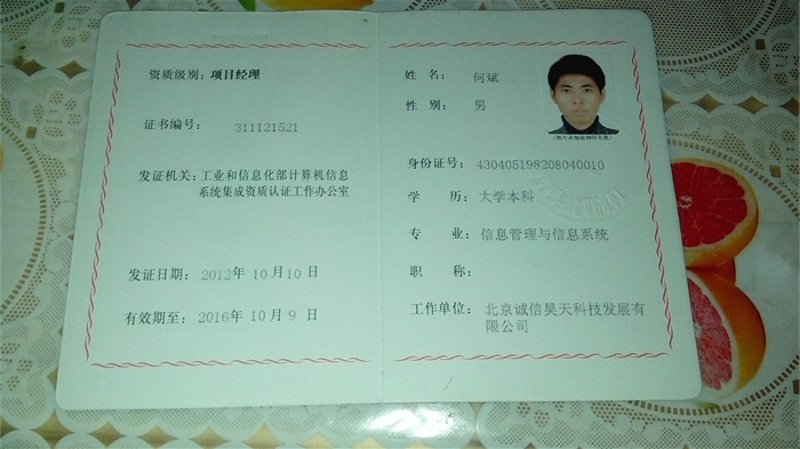 资质级别：项目经理
证书编号： 311121521
发证机关：工业和信息化部计算机信息
系统集成资质认证工作办公室
发证日期：2012年 10月10日
有效期至：2016年 10月 9 日
姓 名： 何斌
性 别： 男
身份证号：430405198208040010
学 历：大学本科
专 业：信息管理与信息系统
职 称：
工作单位：北京诚信昊天科技发展有
限公司